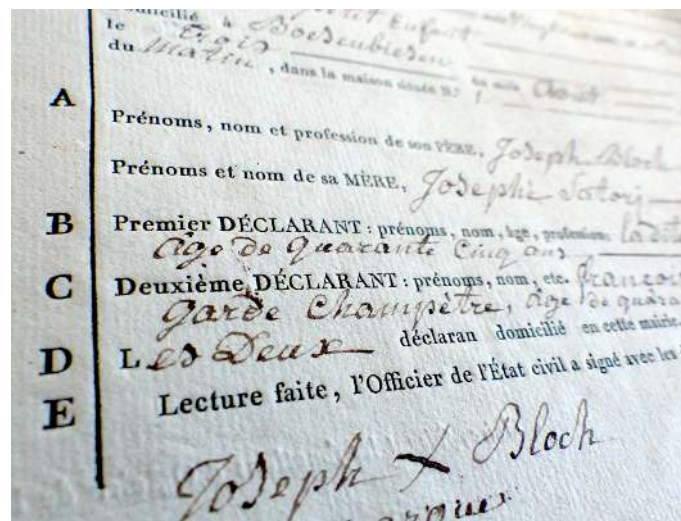 Enfant
le trois
Domicilié à Boesenbiesen
du Matin, dans la maison située N.° 1 Août
A
Prénoms, nom et profession de son PÈRE, Joseph Bloch
Prénoms et nom de sa MÈRE, Josephe Satori
B Premier DÉCLARANT : prénoms, nom, âge, profession: ladit
âge de quarante cinq ans
C Deuxième DÉCLARANT : prénoms, nom, etc. françois
garde Champêtre, âge de quara
D Les Deux déclaran domicilié en cette mairie.
E Lecture faite, l'Officier de l'État civil a signé avec les
Joseph X Bloch